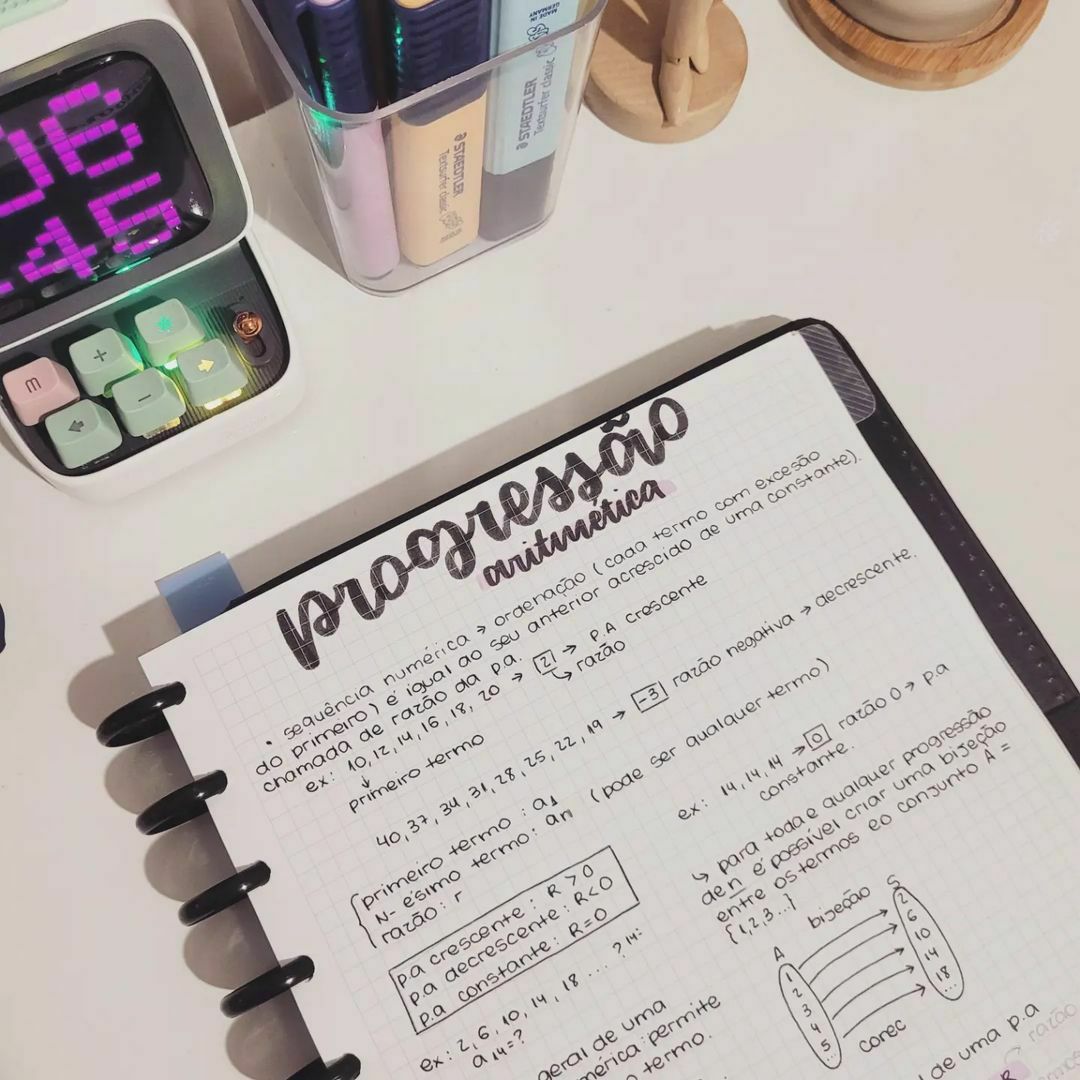 06
:45
M
+
*
-
STAEDTLER
Textsurfer classic
STAEDTLER
Textsurfer classic
MADE IN
GERMANY
progressão
aritmética
• sequência numérica → ordenação (cada termo com excesão
do primeiro) é igual ao seu anterior acrescido de uma constante).
chamada de razão da p.a.
ex: 10, 12, 14, 16, 18, 20 → 2 → P.A crescente
razão
primeiro termo
40, 37, 34, 31, 28, 25, 22, 19 → -3 razão negativa → decrescente.
primeiro termo: a1
N-ésimo termo: an (pode ser qualquer termo)
razão: r
p.a crescente: R > 0
p.a decrescente: R < 0
p.a constante: R = 0
ex: 2, 6, 10, 14, 18 .... ? 14:
a14=?
geral de uma
mérica: permite
termo.
ex: 14, 14, 14 → 0 razão 0 → p.a
constante.
↳ para toda e qualquer progressão
de n é possível criar uma bijeção
entre os termos e o conjunto A =
{1,2,3...}
A bijeção S
1 2
2 6
3 10
4 14
5 18
corec
l de uma p.a
razão
R